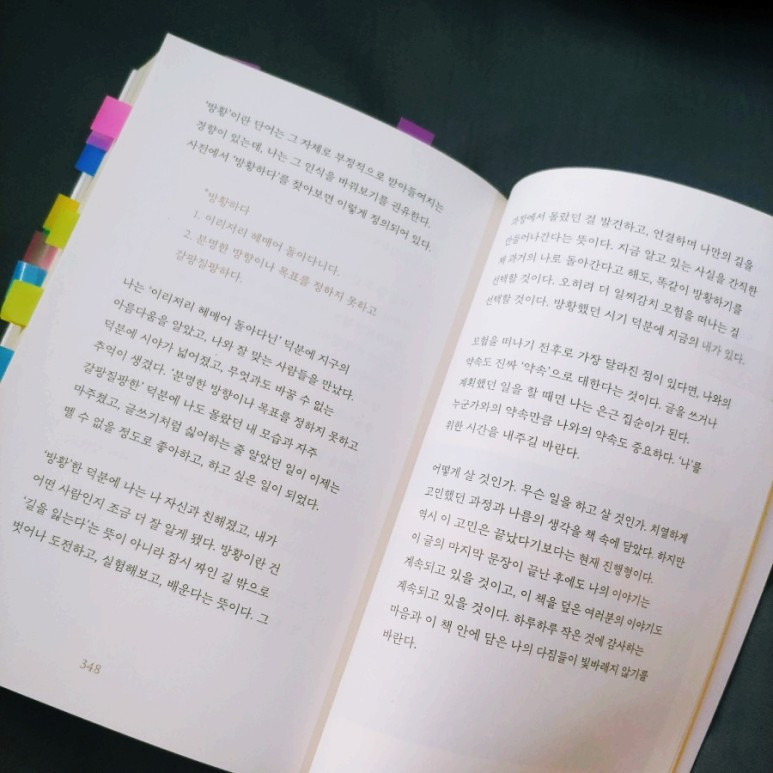 '방황'이란 단어는 그 자체로 부정적으로 받아들여지는
경향이 있는데, 나는 그 인식을 바꿔보기를 권유한다.
사전에서 '방황하다'를 찾아보면 이렇게 정의되어 있다.
*방황하다
1. 이리저리 헤매어 돌아다니다.
2. 분명한 방향이나 목표를 정하지 못하고
갈팡질팡하다.
나는 '이리저리 헤매어 돌아다닌' 덕분에 지구의
아름다움을 알았고, 나와 잘 맞는 사람들을 만났다.
덕분에 시야가 넓어졌고, 무엇과도 바꿀 수 없는
추억이 생겼다. '분명한 방향이나 목표를 정하지 못하고
갈팡질팡한' 덕분에 나도 몰랐던 내 모습과 자주
마주쳤고, 글쓰기처럼 싫어하는 줄 알았던 일이 이제는
뗄 수 없을 정도로 좋아하고, 하고 싶은 일이 되었다.
'방황'한 덕분에 나는 나 자신과 친해졌고, 내가
어떤 사람인지 조금 더 잘 알게 됐다. 방황이란 건
'길을 잃는다'는 뜻이 아니라 잠시 짜인 길 밖으로
벗어나 도전하고, 실험해보고, 배운다는 뜻이다. 그
348
과정에서 몰랐던 걸 발견하고, 연결하며 나만의 길을
만들어나간다는 뜻이다. 지금 알고 있는 사실을 간직한
채 과거의 나로 돌아간다고 해도, 똑같이 방황하기를
선택할 것이다. 오히려 더 일찍감치 모험을 떠나는 걸
선택할 것이다. 방황했던 시기 덕분에 지금의 내가 있다.
모험을 떠나기 전후로 가장 달라진 점이 있다면, 나와의
약속도 진짜 '약속'으로 대한다는 것이다. 글을 쓰거나
계획했던 일을 할 때면 나는 은근 집순이가 된다.
누군가와의 약속만큼 나와의 약속도 중요하다. '나'를
위한 시간을 내주길 바란다.
어떻게 살 것인가. 무슨 일을 하고 살 것인가. 치열하게
고민했던 과정과 나름의 생각을 책 속에 담았다. 하지만
역시 이 고민은 끝났다기보다는 현재 진행형이다.
이 글의 마지막 문장이 끝난 후에도 나의 이야기는
계속되고 있을 것이고, 이 책을 덮은 여러분의 이야기도
계속되고 있을 것이다. 하루하루 작은 것에 감사하는
마음과 이 책 안에 담은 나의 다짐들이 빛바래지 않기를
바란다.